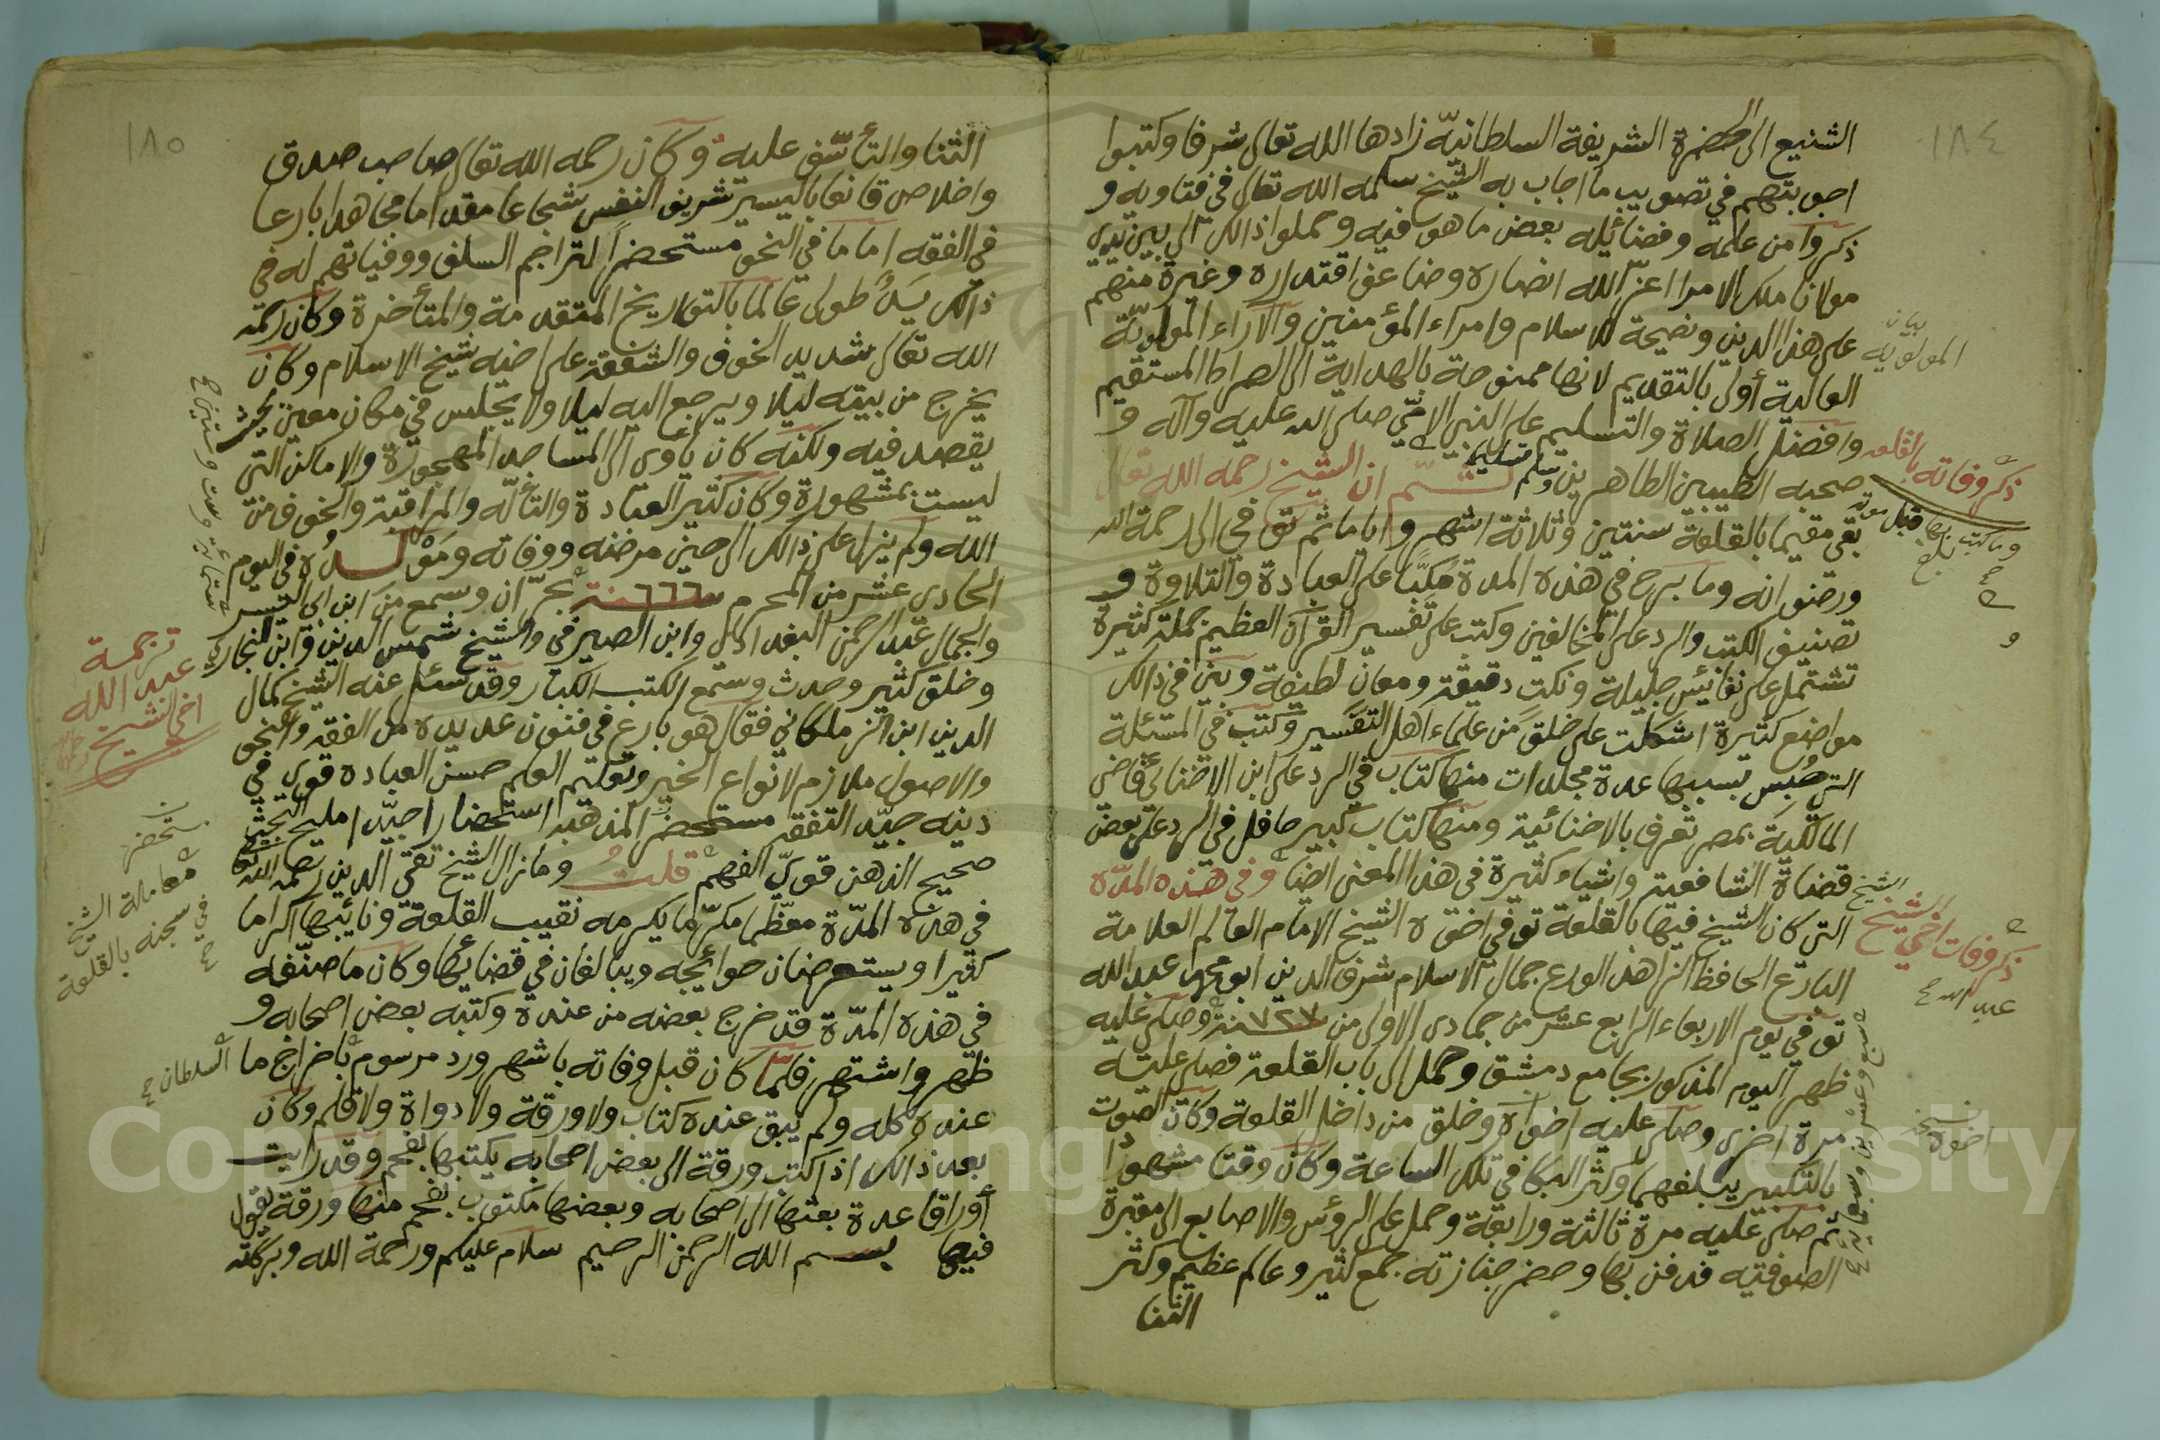 ١٨٤
الشنيع الى الحضرة الشريفة السلطانيّة زادها الله تعالى شرفا وكتبوا
اجوبتهم في تصويب ما اجاب به الشيخ سلمه الله تعالى في فتاويه و
ذكروا من علمه وفضائله بعض ما هو فيه وحملوا ذالك الى بين يدي
مولانا ملك الامرا اعزّ الله انصاره وضاعف اقتداره وغيرة منهم
على هذا الدين ونصيحة للاسلام وامراء المؤمنين والآراء المولويّة
العالية أولى بالتقديم لانها ممنوحة بالهداية الى الصراط المستقيم
وافضل الصلاة والتسليم على النبي الامّي صلى الله عليه وآله و
صحبه الطيبين الطاهرين وسلم تسليم ثــمّ ان الشيخ رحمه الله تعالى
بقي مقيما بالقلعة سنتين وثلاثة اشهر واياما ثم توفي الى رحمة الله
ورضوانه وما برح في هذه المدة مُكبّا على العبادة والتلاوة و
تصنيف الكتب والرد على المخالفين وكتب على تفسير القرآن العظيم جملة كثيرة
تشتمل على نفائيس جليلة ونكت دقيقة ومعان لطيفة وبين في ذالك
مواضع كثيرة اشكلت على خلق من علماء اهل التفسير وكتب في المسئلة
التي حُبس بسببها عدة مجلدات منها كتاب في الرد على ابن الاخنائي قاضي
المالكية بمصر تعرف بالاخنائية ومنها كتاب كبير حافل في الرد على بعض
قضاة الشافعية واشياء كثيرة في هذا المعنى ايضا وفي هذه المدّة
التي كان الشيخ فيها بالقلعة توفي اخوه الشيخ الامام العالم العلامة
البارع الحافظ الزاهد الورع جمال الاسلام شرف الدين ابو محمد عبد الله
توفي يوم الاربعاء الرابع عشر من جمادى الاولى من سنة ٧٢٧ وصلي عليه
ظهر اليوم المذكور بجامع دمشق وحمل الى باب القلعة فصلي عليه
مرة اخرى وصلى عليه اخواه وخلق من داخل القلعة وكان الصوت
بالتكبير يبلغهما وكثر البكا في تلك الساعة وكان وقتا مشهودا
ثم صلى عليه مرة ثالثة ورابعة وحمل على الرؤس والاصابع الى مقبرة
الصوفيّه فدفن بها وحضر جنازته جمع كثير وعالم عظيم وكثر
الثنا
بيان
المولوية
ذكر وفاته بالقلعه
وما كتب بها قبل موته
بلغ
ذكر وفات اخي الشيخ
عبد الله
سبع وعشرين وسبعمائة
اخوة
١٨٥
الثنا والتأسّف عليه وكان رحمه الله تعالى صاحب صدق
واخلاص قانعا باليسير شريف النفس شجاعا مقداما مجاهدا بارعا
في الفقه اماما في النحو مستحضراً لتراجم السلف ووفياتهم له في
ذالك يَدٌ طولى عالما بالتواريخ المتقدمة والمتأخرة وكان رحمه
الله تعالى شديد الخوف والشفقة على اخيه شيخ الاسلام وكان
يخرج من بيته ليلا ويرجع اليه ليلا ولا يجلس في مكان معين بحيث
يقصد فيه ولكنه كان يأوى الى المساجد المهجورة والاماكن التي
ليست بمشهورة وكان كثير العبادة والتألّه والمراقبة والخوف من
الله ولم يزل على ذالك الى حين مرضه ووفاته ومَوْلــدُه في اليوم
الحادي عشر من المحرم سنة ٦٦٦ بحرّان وسمع من ابن ابي اليسر
والجمال عبد الرحمن البغدادي وابن الصيرفي والشيخ شمس الدين وابن البخاري
وخلق كثير وحدث وسمع الكتب الكبار وقد سئل عنه الشيخ كمال
الدين ابن الزملكاني فقال هو بارع في فنون عديده من الفقه والنحو
والاصول ملازم لانواع الخير وتعليم العلم حسن العباده قوي في
دينه جيّد التفقه مستحضراً لمذهبه استحضارا جيّدا مليح البحث
صحيح الذهن قويّ الفهم قلت وما زال الشيخ تقي الدين رحمه الله
في هذه المدّة معظّما مكرّما يكرمه نقيب القلعة ونائبها اكراما
كثيرا ويستعرضان حوائجه ويبالغان في قضائها وكان ما صنّفه
في هذه المدّة قد خرج بعضه من عنده وكتبه بعض اصحابه و
ظهر واشتهر فلمّا كان قبل وفاته باشهر ورد مرسوم باخراج ما
عنده كله ولم يبق عنده كتاب ولا ورقة ولا دواة ولا قلم وكان
بعد ذالك اذا كتب ورقة الى بعض اصحابه يكتبها بفحم وقد رايت
أوراقا عدة بعثها الى اصحابه وبعضها مكتوب بفحم منها ورقة يقول
فيها بســم الله الرحمن الرحيم سلام عليكم ورحمة الله وبركاته
ستمائة وست وستين
ترجمة
عبد الله
اخي الشيخ
معاملة الشيخ
في سجنه بالقلعة
السلطان
Copyright © King Saud University